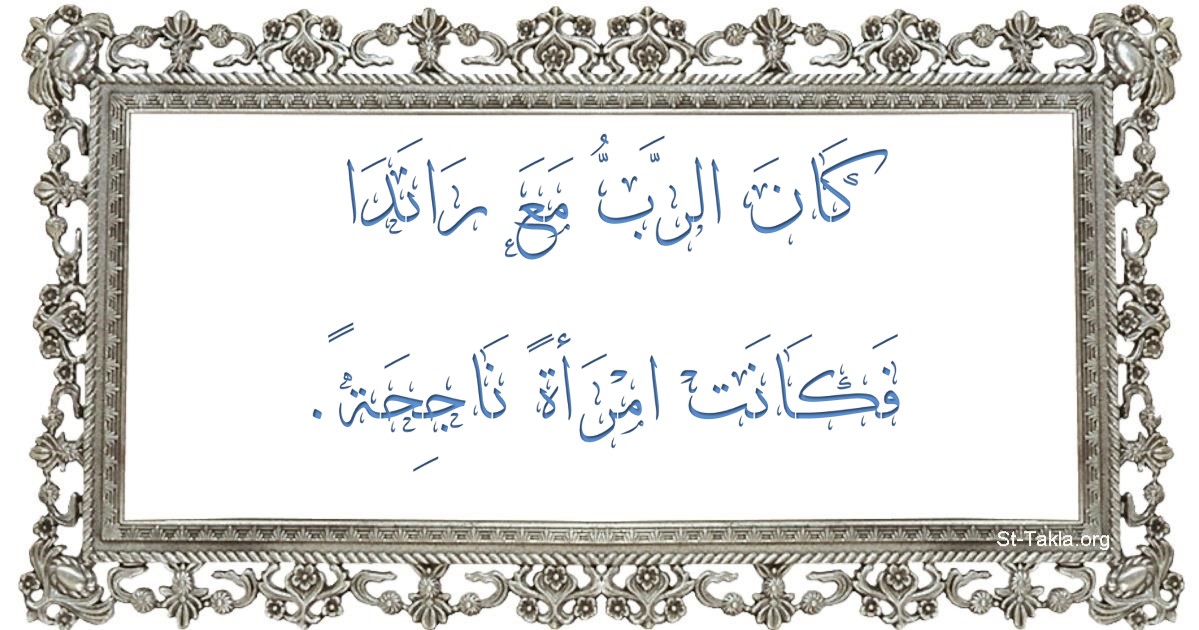 كَانَ الرَّبُّ مَعَ رَانَدَا
فَكَانَتْ امْرَأَةً نَاجِحَةً.
St-Takla.org